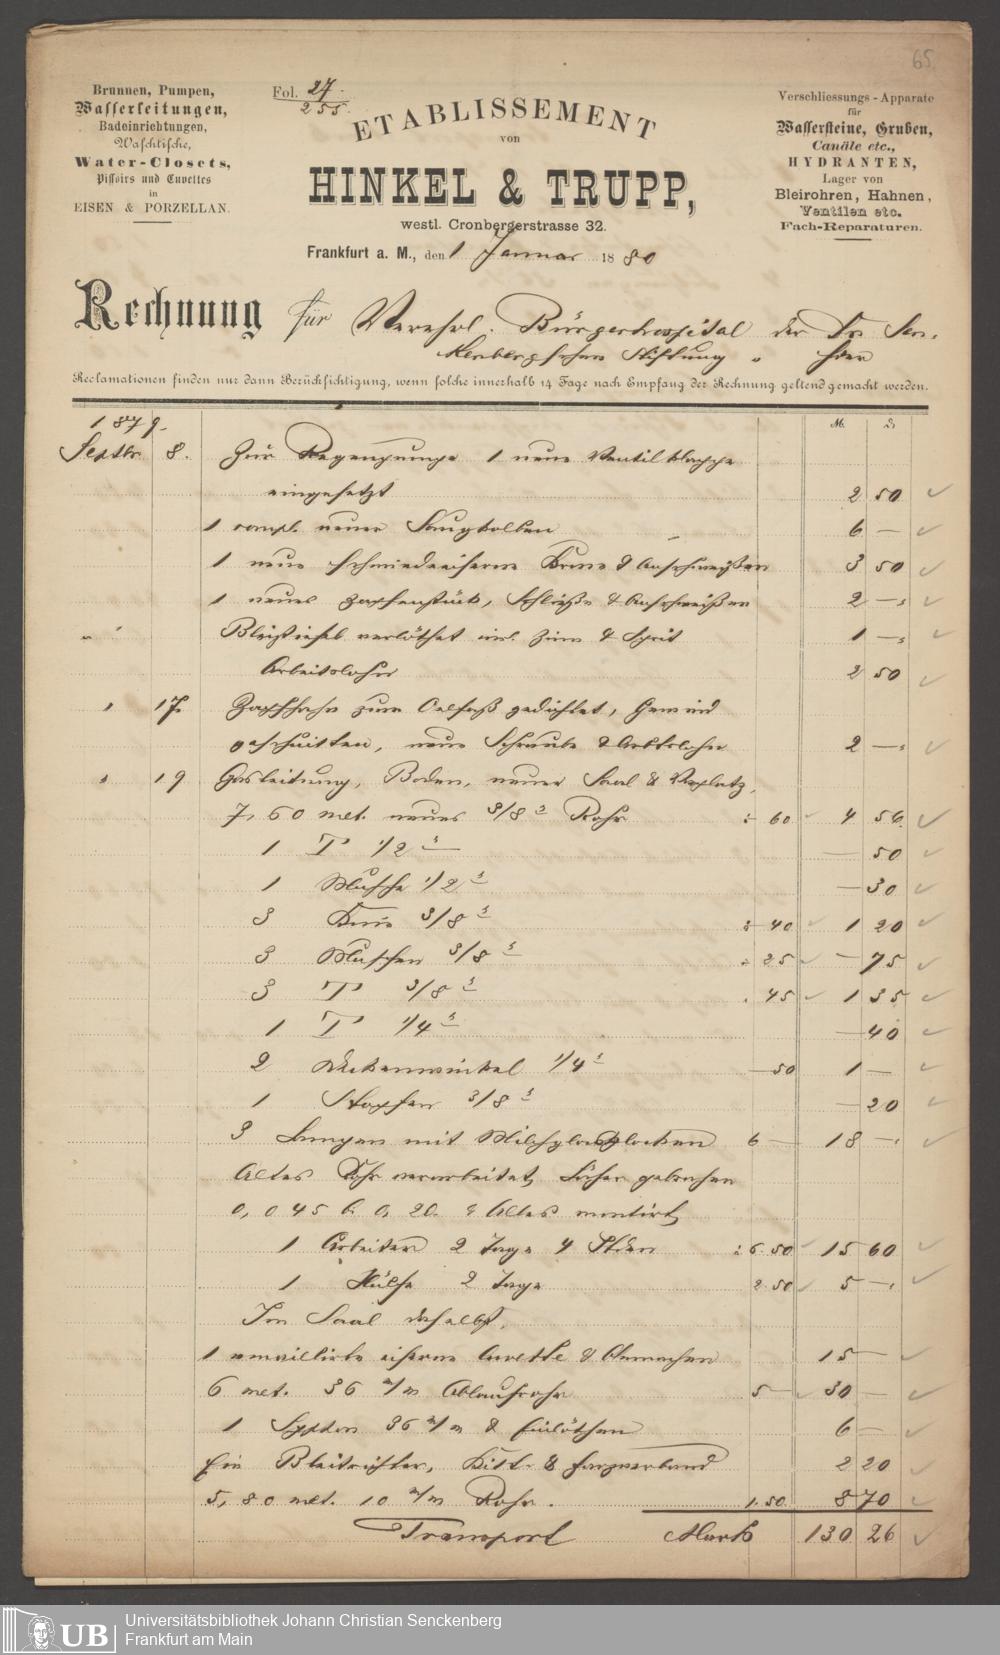 65.
Brunnen, Pumpen,
Wasserleitungen,
Badeinrichtungen,
Waschtische,
Water-Closets,
Pissoirs und Cuvettes
in
EISEN & PORZELLAN.
Fol. 27.
255.
ETABLISSEMENT
von
HINKEL & TRUPP,
westl. Cronbergerstrasse 32.
Verschliessungs-Apparate
für
Wassersteine, Gruben,
Canäle etc.,
HYDRANTEN,
Lager von
Bleirohren, Hahnen,
Ventilen etc.
Fach-Reparaturen.
Frankfurt a. M., den 1 Januar 1880
Rechnung für Verehrl. Bürgerhospital der Dr. Sen-
kenbergschen Stiftung hier
Reclamationen finden nur dann Berücksichtigung, wenn solche innerhalb 14 Tage nach Empfang der Rechnung geltend gemacht werden.
1879. M. ₰
Septbr. 8. Zur Regenpumpe 1 neue Ventilklappe
eingesetzt 2 50
1 compl. neuer Saugkolben 6 —
1 neue schmiedeeiserne & Anschweißen 3 50
1 neues Zapfenstück, & Anschweißen 2 —
verlöthet incl. Zinn & Sprit 1 —
Arbeitslohn 2 50
" 17. Zapfhahn zum Oelfaß gedichtet, Gewind
geschnitten, neue Schraube & Arbtslohn 2 —
" 19 Gasleitung, Boden, neuer Saal & Vorplatz,
7,60 met. neues 3/8" Rohr : 60 4 56
1 T 1/2" — 50
1 Muffe 1/2" — 30
3 Knie 3/8" : 40 1 20
3 Muffen 3/8" : 25 — 75
3 T 3/8" : 45 1 35
1 T 1/4" — 40
2 Deckenwinkel 1/4" — 50 1 —
1 Stopfen 3/8" — 20
3 Lampen mit Milchglasglocken 6 — 18 —
Altes Rohr verarbeitet, Löcher gebrochen
0,045 C. 0,20. & Alles montirt,
1 Arbeiter 2 Tage 4 Stden : 6.50 15 60
1 Hülfe 2 Tage 2.50 5 —
Im Saal daselbst,
1 emaillirte eiserne Cuvette & Anmachen 15 —
6 met. 36 m/m Ablaufrohr 5 — 30 —
1 Syphon 36 m/m & Einlöthen 6 —
Ein Bleitrichter, Kitt & 2 20
5,80 met. 10 m/m Rohr. 1.50 8 70
Transport Mark 130 26
UB
Universitätsbibliothek Johann Christian Senckenberg
Frankfurt am Main